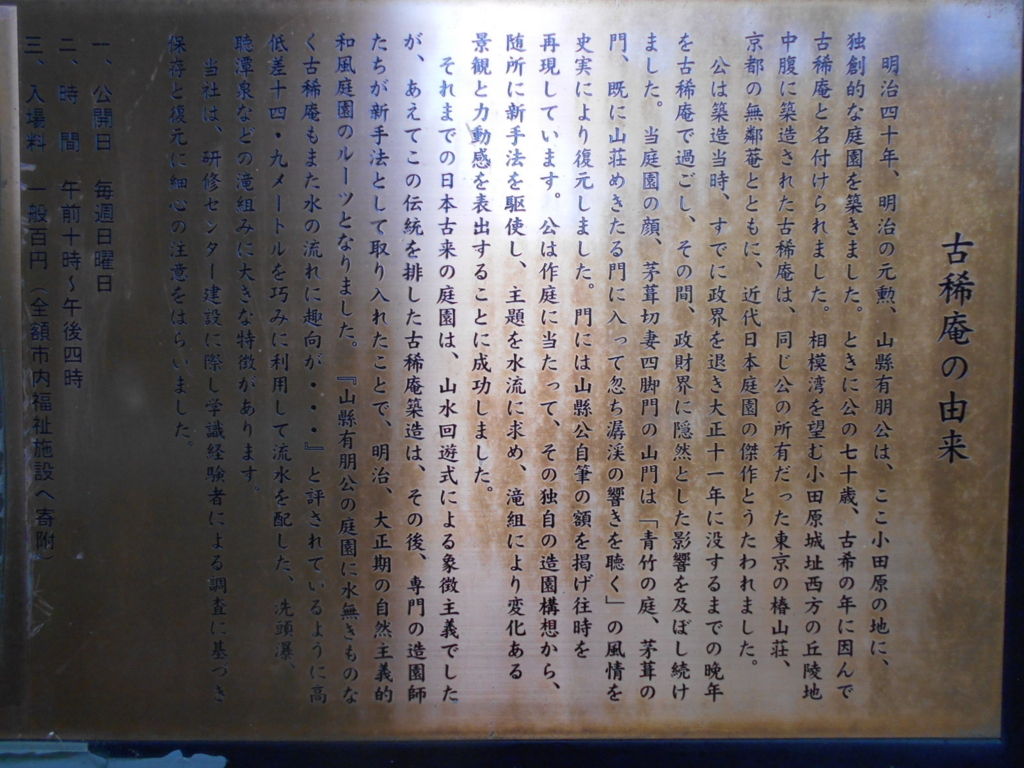 古稀庵の由来
明治四十年、明治の元勲、山縣有朋公は、ここ小田原の地に、
独創的な庭園を築きました。ときに公の七十歳、古希の年に因んで
古稀庵と名付けられました。相模湾を望む小田原城址西方の丘陵地
中腹に築造された古稀庵は、同じ公の所有だった東京の椿山荘、
京都の無鄰菴とともに、近代日本庭園の傑作とうたわれました。
公は築造当時、すでに政界を退き大正十一年に没するまでの晩年
を古稀庵で過ごし、その間、政財界に隠然とした影響を及ぼし続け
ました。当庭園の顔、茅葺切妻四脚門の山門は「青竹の庭、茅葺の
門、既に山荘めきたる門に入って忽ち潺渓の響きを聴く」の風情を
史実により復元しました。門には山縣公自筆の額を掲げ往時を
再現しています。公は作庭に当たって、その独自の造園構想から、
随所に新手法を駆使し、主題を水流に求め、滝組により変化ある
景観と力動感を表出することに成功しました。
それまでの日本古来の庭園は、山水回遊式による象徴主義でした
が、あえてこの伝統を排した古稀庵築造は、その後、専門の造園師
たちが新手法として取り入れたことで、明治、大正期の自然主義的
和風庭園のルーツとなりました。『山縣有朋公の庭園に水無きものな
く古稀庵もまた水の流れに趣向が・・・』と評されているように高
低差十四・九メートルを巧みに利用して流水を配した、洗頭瀑、
聴潭泉などの滝組みに大きな特徴があります。
当社は、研修センター建設に際し学識経験者による調査に基づき
保存と復元に細心の注意をはらいました。
一、公開日 毎週日曜日
二、時 間 午前十時～午後四時
三、入場料 一般百円（全額市内福祉施設へ寄附）